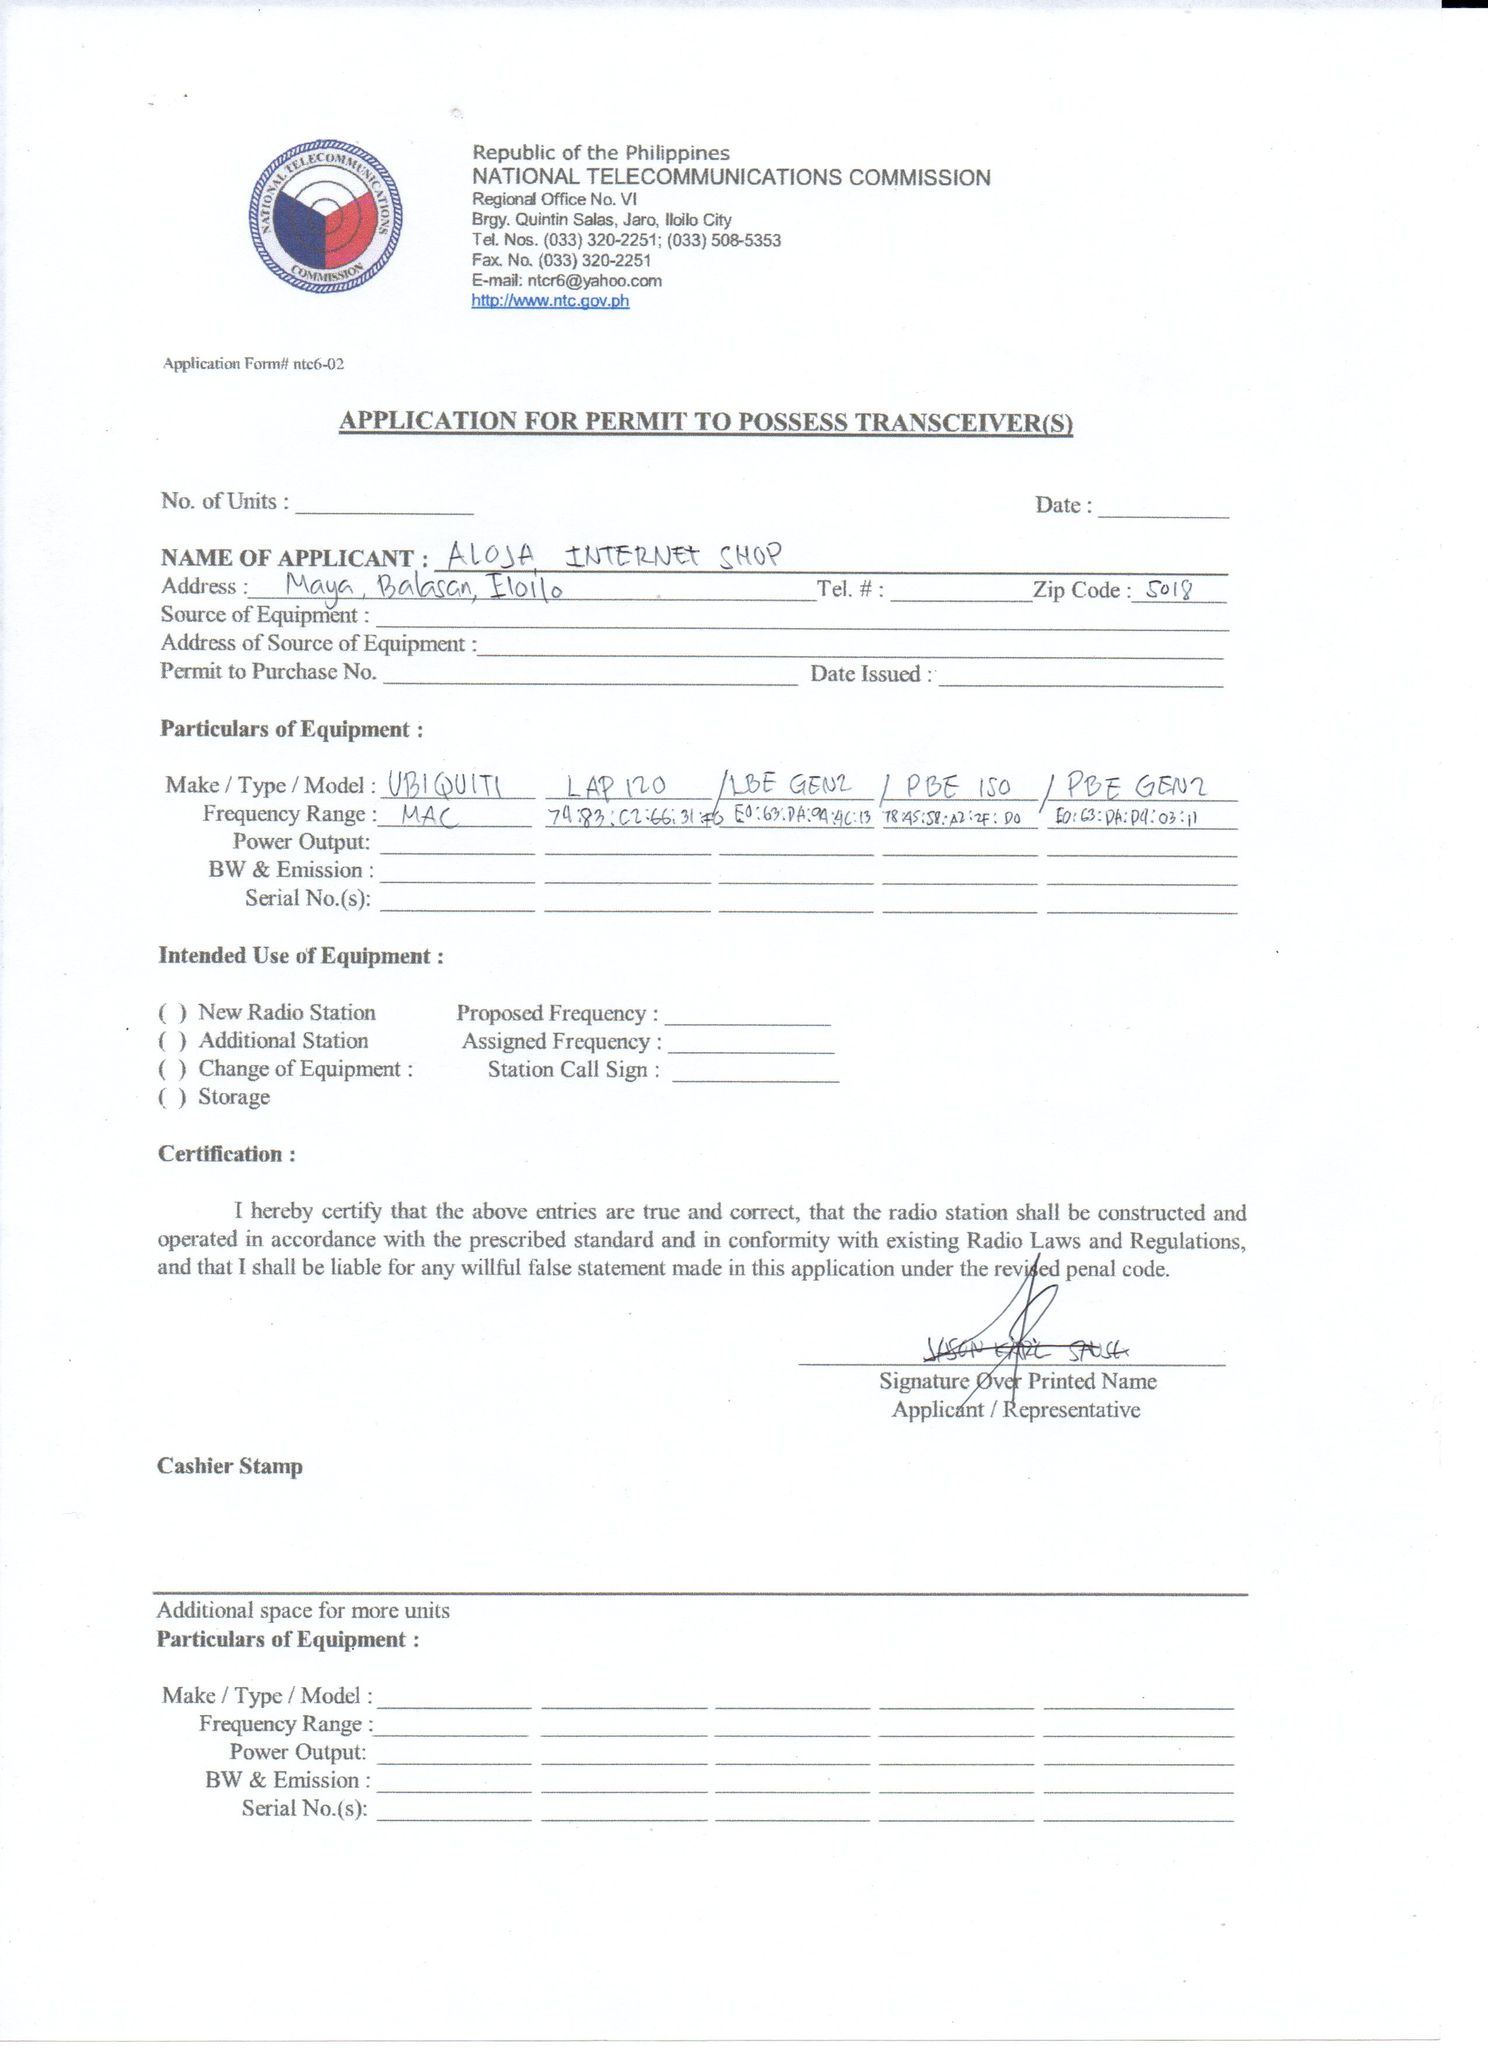 NATIONAL TELECOMMUNICATIONS COMMISSION
Republic of the Philippines
NATIONAL TELECOMMUNICATIONS COMMISSION
Regional Office No. VI
Brgy. Quintin Salas, Jaro, Iloilo City
Tel. Nos. (033) 320-2251; (033) 508-5353
Fax. No. (033) 320-2251
E-mail: ntcr6@yahoo.com
http://www.ntc.gov.ph
Application Form# ntc6-02
APPLICATION FOR PERMIT TO POSSESS TRANSCEIVER(S)
No. of Units : Date :
NAME OF APPLICANT : ALOJA INTERNET SHOP
Address : Maya, Balasan, Iloilo Tel. # : Zip Code : 5018
Source of Equipment :
Address of Source of Equipment :
Permit to Purchase No. Date Issued :
Particulars of Equipment :
Make / Type / Model : UBIQUITI LAP 120 / LBE GEN2 / PBE ISO / PBE GEN2
Frequency Range : MAC 74:83:C2:66:31:F6 E0:63:DA:9A:4C:13 78:45:58:A2:2F:D0 E0:63:DA:D9:03:11
Power Output:
BW & Emission :
Serial No.(s):
Intended Use of Equipment :
( ) New Radio Station Proposed Frequency :
( ) Additional Station Assigned Frequency :
( ) Change of Equipment : Station Call Sign :
( ) Storage
Certification :
I hereby certify that the above entries are true and correct, that the radio station shall be constructed and
operated in accordance with the prescribed standard and in conformity with existing Radio Laws and Regulations,
and that I shall be liable for any willful false statement made in this application under the revised penal code.
JASON KARL
Signature Over Printed Name
Applicant / Representative
Cashier Stamp
Additional space for more units
Particulars of Equipment :
Make / Type / Model :
Frequency Range :
Power Output:
BW & Emission :
Serial No.(s):